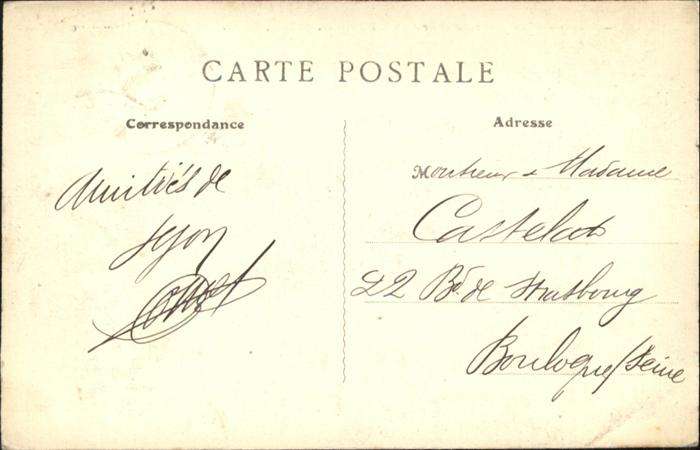 CARTE POSTALE
Correspondance
Amitiés de
Lyon
Adresse
Monsieur & Madame
Castelot
22 Bd. de Strasbourg
Boulogne/Seine